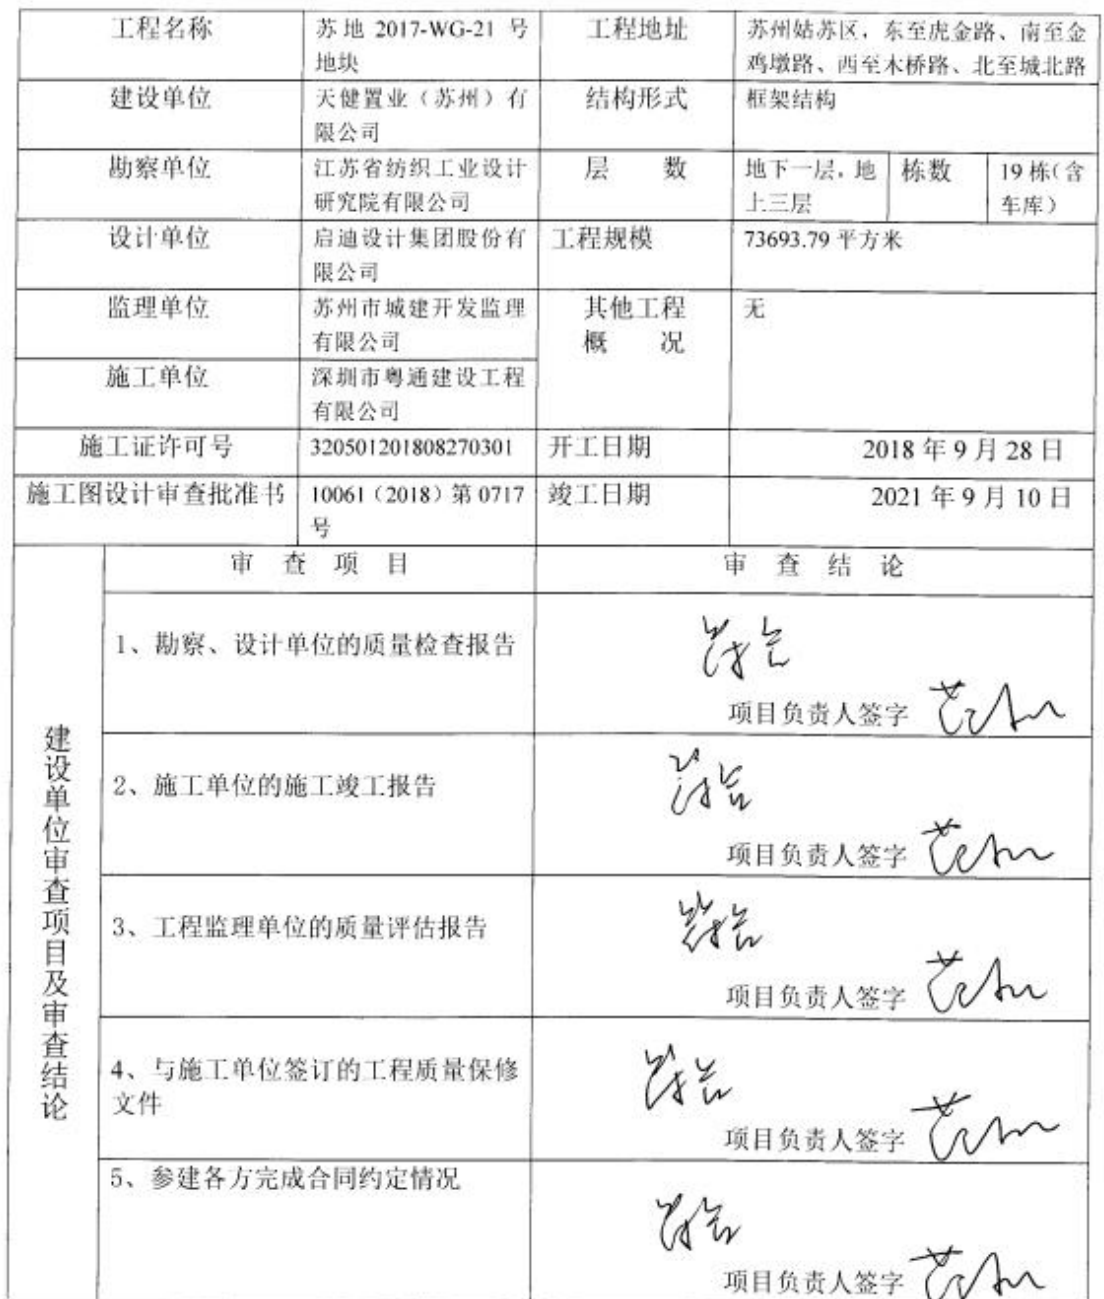 工程名称
苏地 2017-WG-21 号
地块
工程地址
苏州姑苏区，东至虎金路、南至金
鸡墩路、西至木桥路、北至城北路
建设单位
天健置业（苏州）有
限公司
结构形式
框架结构
勘察单位
江苏省纺织工业设计
研究院有限公司
层 数
地下一层，地
上三层
栋数
19 栋（含
车库）
设计单位
启迪设计集团股份有
限公司
工程规模
73693.79 平方米
监理单位
苏州市城建开发监理
有限公司
其他工程
概 况
无
施工单位
深圳市粤通建设工程
有限公司
施工证许可号
320501201808270301
开工日期
2018 年 9 月 28 日
施工图设计审查批准书
10061（2018）第 0717
号
竣工日期
2021 年 9 月 10 日
建设单位审查项目及审查结论
审 查 项 目
审 查 结 论
1、勘察、设计单位的质量检查报告
符合
项目负责人签字
2、施工单位的施工竣工报告
符合
项目负责人签字
3、工程监理单位的质量评估报告
符合
项目负责人签字
4、与施工单位签订的工程质量保修
文件
符合
项目负责人签字
5、参建各方完成合同约定情况
符合
项目负责人签字